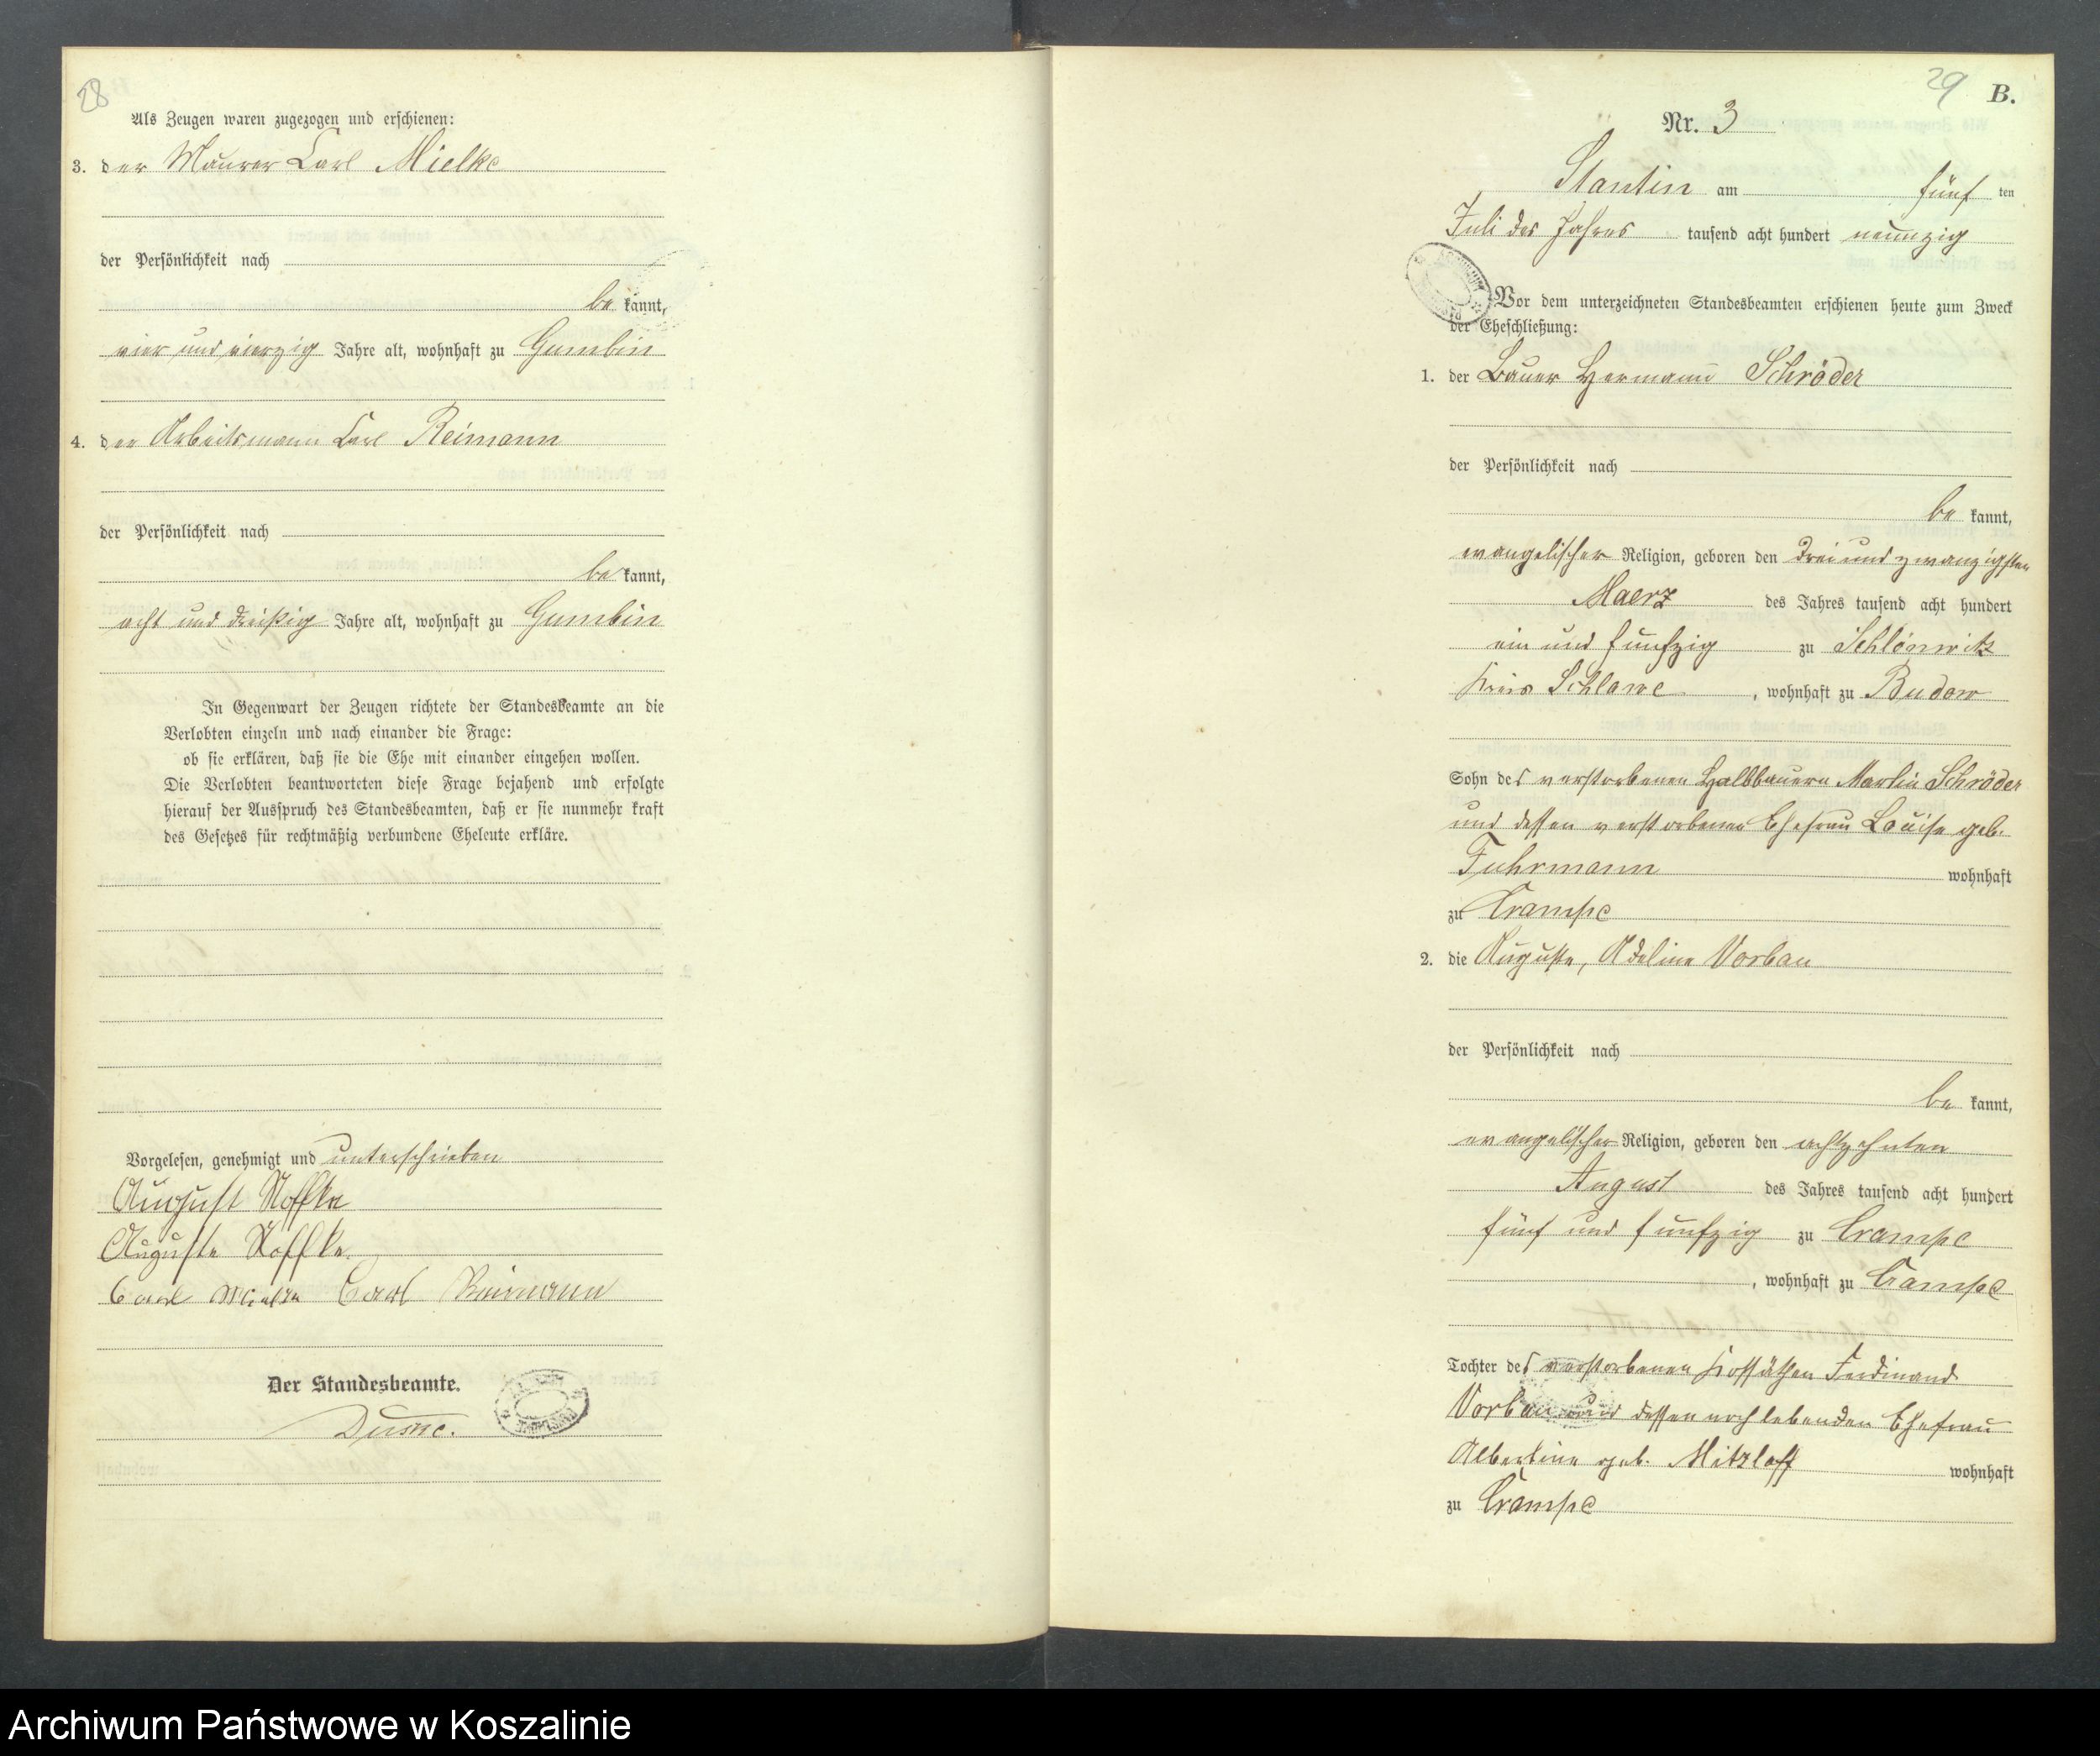 28
Als Zeugen waren zugezogen und erschienen:
3. der Maurer Carl Mielke
der Persönlichkeit nach
be kannt,
vier und vierzig Jahre alt, wohnhaft zu Gumbin
4. der Arbeitsmann Carl Reimann
der Persönlichkeit nach
be kannt,
acht und dreißig Jahre alt, wohnhaft zu Gumbin
In Gegenwart der Zeugen richtete der Standesbeamte an die
Verlobten einzeln und nach einander die Frage:
ob sie erklären, daß sie die Ehe mit einander eingehen wollen.
Die Verlobten beantworteten diese Frage bejahend und erfolgte
hierauf der Ausspruch des Standesbeamten, daß er sie nunmehr kraft
des Gesetzes für rechtmäßig verbundene Eheleute erkläre.
Vorgelesen, genehmigt und unterschrieben
August Noffke
Auguste Noffke.
Carl Mielke Carl Reimann
Der Standesbeamte.
29 B.
Nr. 3
Stantin am fünf ten
Juli des Jahres tausend acht hundert neunzig
Vor dem unterzeichneten Standesbeamten erschienen heute zum Zweck
der Eheschließung:
1. der Bauer Hermann Schröder
der Persönlichkeit nach
be kannt,
evangelischer Religion, geboren den dreiundzwanzigsten
Maerz des Jahres tausend acht hundert
ein und funfzig zu Schlönwitz
Kreis Schlawe, wohnhaft zu Budow
Sohn des verstorbenen Halbbauern Martin Schröder
und dessen verstorbenen Ehefrau Louise geb.
Fuhrmann wohnhaft
zu Crampe
2. die Auguste, Adeline Vorbau
der Persönlichkeit nach
be kannt,
evangelischer Religion, geboren den achtzehnten
August des Jahres tausend acht hundert
fünf und funfzig zu Crampe
, wohnhaft zu Crampe
Tochter des verstorbenen Kossäthen Ferdinand
Vorbau und dessen noch lebenden Ehefrau
Albertine geb. Mitzlaff wohnhaft
zu Crampe
Archiwum Państwowe w Koszalinie